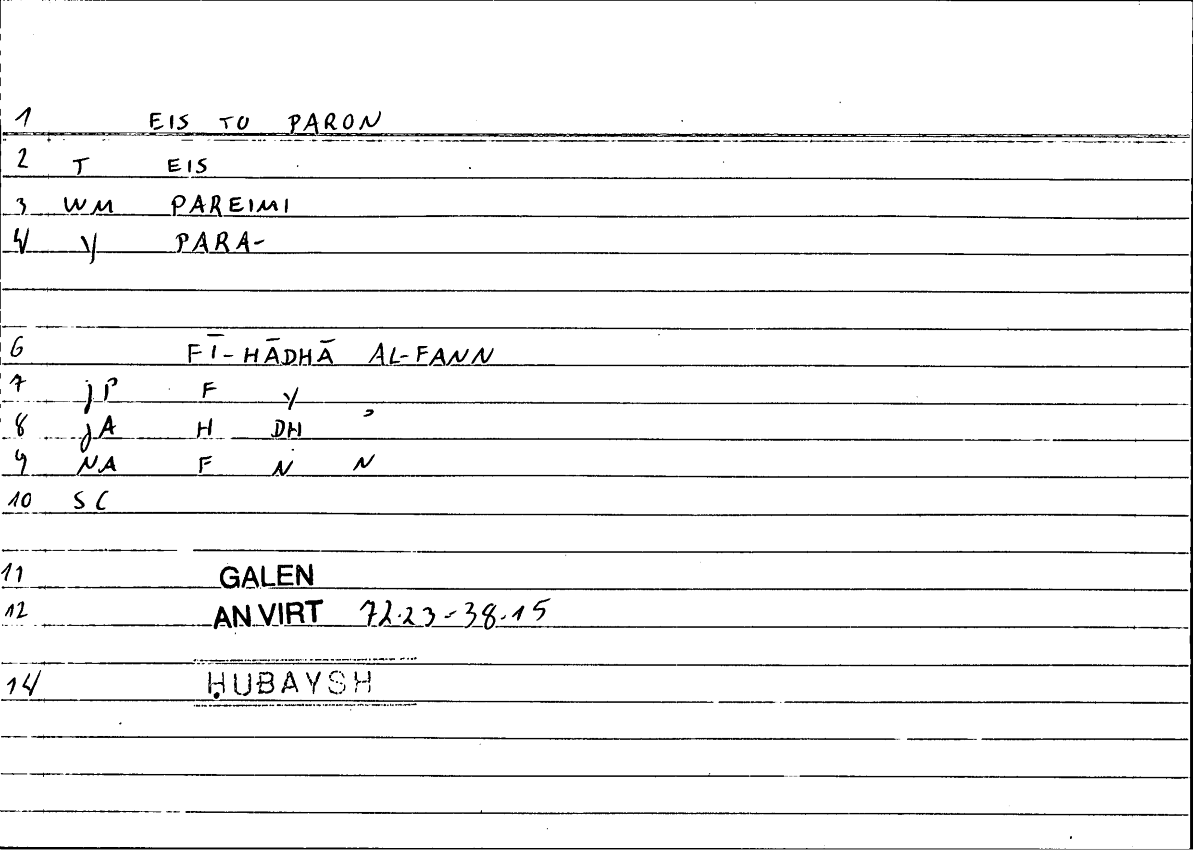 1 EIS TO PARON
2 T EIS
3 WM PAREIMI
4 V PARA-
6 FĪ-HĀDHĀ AL-FANN
7 JP F Y
8 JA H DH ʾ
9 NA F N N
10 SC
11 GALEN
12 AN VIRT 72.23-38.15
14 ḤUBAYSH